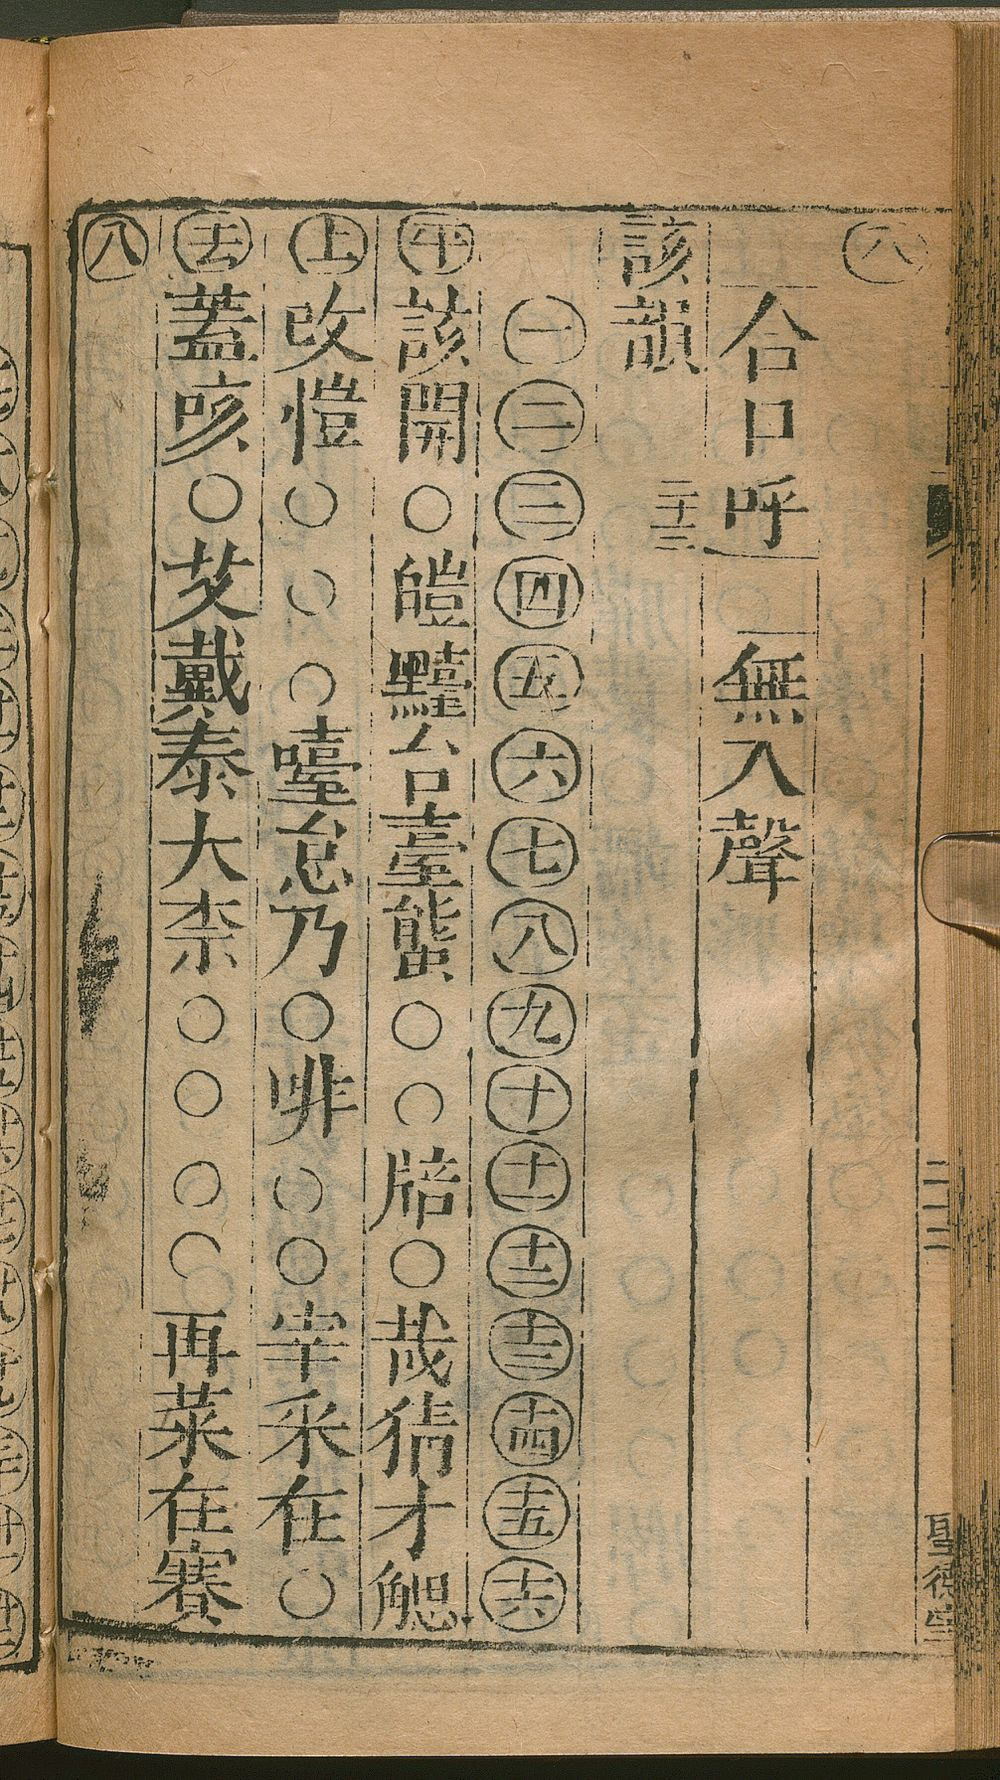 入
合口呼 無入聲
該韻 二十三
一 二 三 四 五 六 七 八 九 十 十一 十二 十三 十四 十五 十六
平 該開○皚台臺螚○○○哉猜才䚡
上 改愷○○○嚉怠乃○啡○○宰采在○
去 蓋咳○艾戴泰大柰○○○○再菜在賽
入